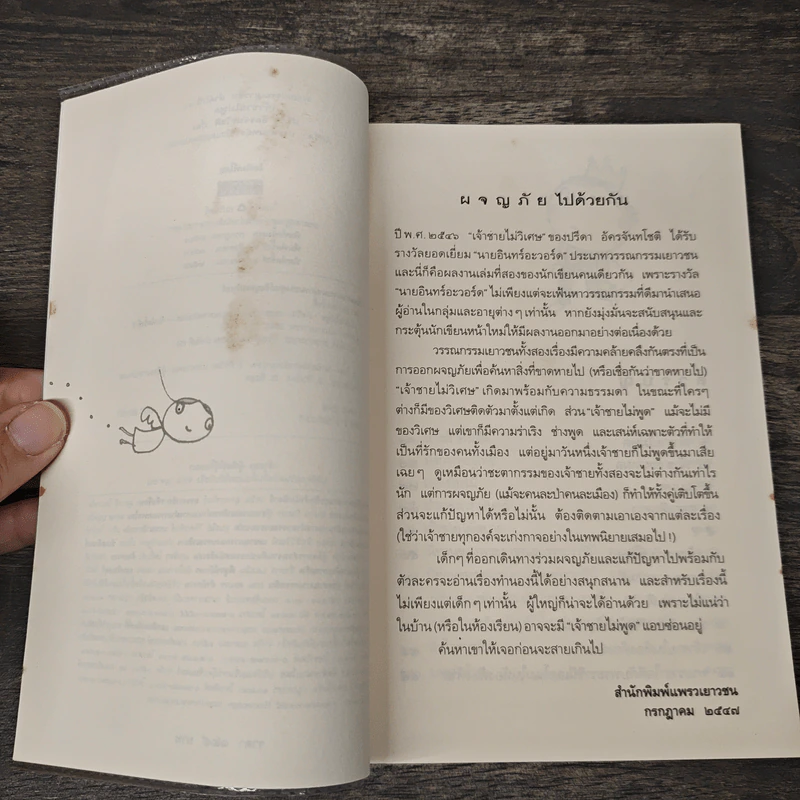 ผ จ ญ ภั ย ไปด้วยกัน
ปี พ.ศ. ๒๕๔๖ "เจ้าชายไม่วิเศษ" ของปรีดา อัครจันทโชติ ได้รับ
รางวัลยอดเยี่ยม "นายอินทร์อะวอร์ด" ประเภทวรรณกรรมเยาวชน
และนี่ก็คือผลงานเล่มที่สองของนักเขียนคนเดียวกัน เพราะรางวัล
"นายอินทร์อะวอร์ด" ไม่เพียงแต่จะเฟ้นหาวรรณกรรมที่ดีมานำเสนอ
ผู้อ่านในกลุ่มและอายุต่าง ๆ เท่านั้น หากยังมุ่งมั่นจะสนับสนุนและ
กระตุ้นนักเขียนหน้าใหม่ให้มีผลงานออกมาอย่างต่อเนื่องด้วย
วรรณกรรมเยาวชนทั้งสองเรื่องมีความคล้ายคลึงกันตรงที่เป็น
การออกผจญภัยเพื่อค้นหาสิ่งที่ขาดหายไป (หรือเชื่อกันว่าขาดหายไป)
"เจ้าชายไม่วิเศษ" เกิดมาพร้อมกับความธรรมดา ในขณะที่ใครๆ
ต่างก็มีของวิเศษติดตัวมาตั้งแต่เกิด ส่วน "เจ้าชายไม่พูด" แม้จะไม่มี
ของวิเศษ แต่เขาก็มีความร่าเริง ช่างพูด และเสน่ห์เฉพาะตัวที่ทำให้
เป็นที่รักของคนทั้งเมือง แต่อยู่มาวันหนึ่งเจ้าชายก็ไม่พูดขึ้นมาเสีย
เฉย ๆ ดูเหมือนว่าชะตากรรมของเจ้าชายทั้งสองจะไม่ต่างกันเท่าไร
นัก แต่การผจญภัย (แม้จะคนละป่าคนละเมือง) ก็ทำให้ทั้งคู่เติบโตขึ้น
ส่วนจะแก้ปัญหาได้หรือไม่นั้น ต้องติดตามเอาเองจากแต่ละเรื่อง
(ใช่ว่าเจ้าชายทุกองค์จะเก่งกาจอย่างในเทพนิยายเสมอไป !)
เด็กๆ ที่ออกเดินทางร่วมผจญภัยและแก้ปัญหาไปพร้อมกับ
ตัวละครจะอ่านเรื่องทำนองนี้ได้อย่างสนุกสนาน และสำหรับเรื่องนี้
ไม่เพียงแต่เด็ก ๆ เท่านั้น ผู้ใหญ่ก็น่าจะได้อ่านด้วย เพราะไม่แน่ว่า
ในบ้าน (หรือในห้องเรียน) อาจจะมี "เจ้าชายไม่พูด" แอบซ่อนอยู่
ค้นหาเขาให้เจอก่อนจะสายเกินไป
สำนักพิมพ์แพรวเยาวชน
กรกฎาคม ๒๕๔๗